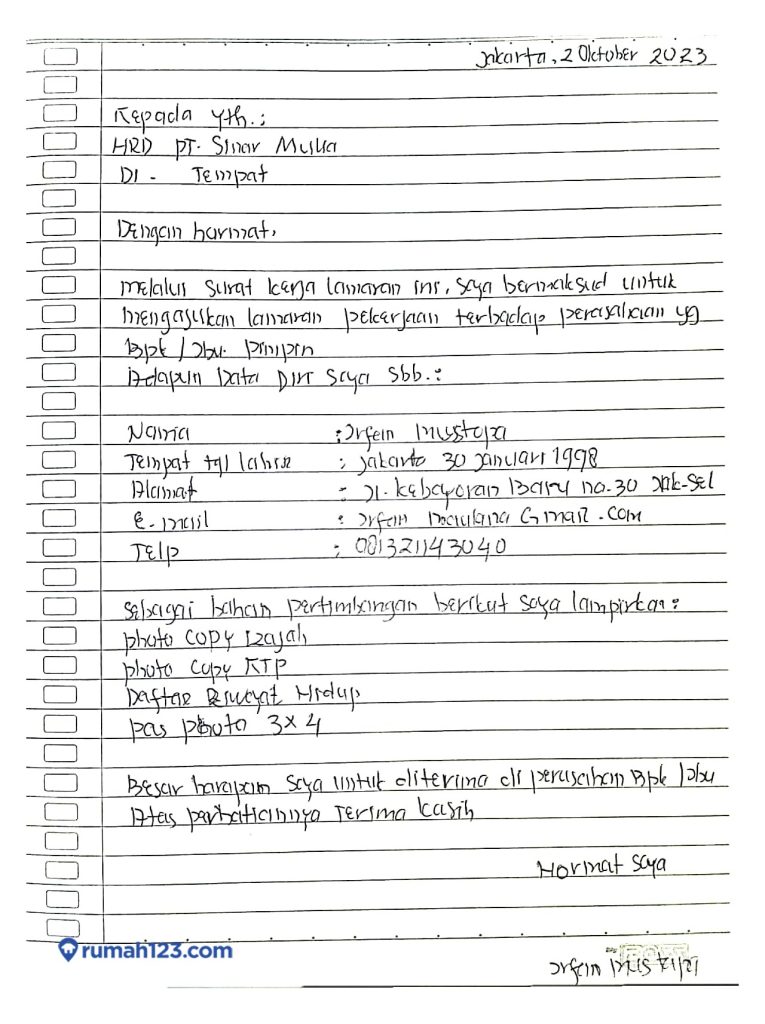 Jakarta, 2 Oktober 2023
Kepada Yth.:
HRD PT. Sinar Mulia
Di - Tempat
Dengan hormat,
Melalui surat kerja lamaran ini, saya bermaksud untuk
mengajukan lamaran pekerjaan terhadap perusahaan yg
Bpk / Ibu. pimpin
Adapun Data Diri saya Sbb.:
Nama : Irfan Mustopa
Tempat tgl lahir : Jakarta 30 Januari 1998
Alamat : Jl. Kebayoran Baru no.30 Jak-Sel
E-mail : Irfan Maulana Gmail.com
Telp : 081321143040
Sebagai bahan pertimbangan berikut saya lampirkan:
photo copy Izajah
photo copy KTP
Daftar Riwayat Hidup
pas photo 3x4
Besar harapan saya untuk diterima di perusahan Bpk / Ibu
Atas perhatiannya Terima kasih
Hormat saya
rumah123.com
Irfan Mustapa